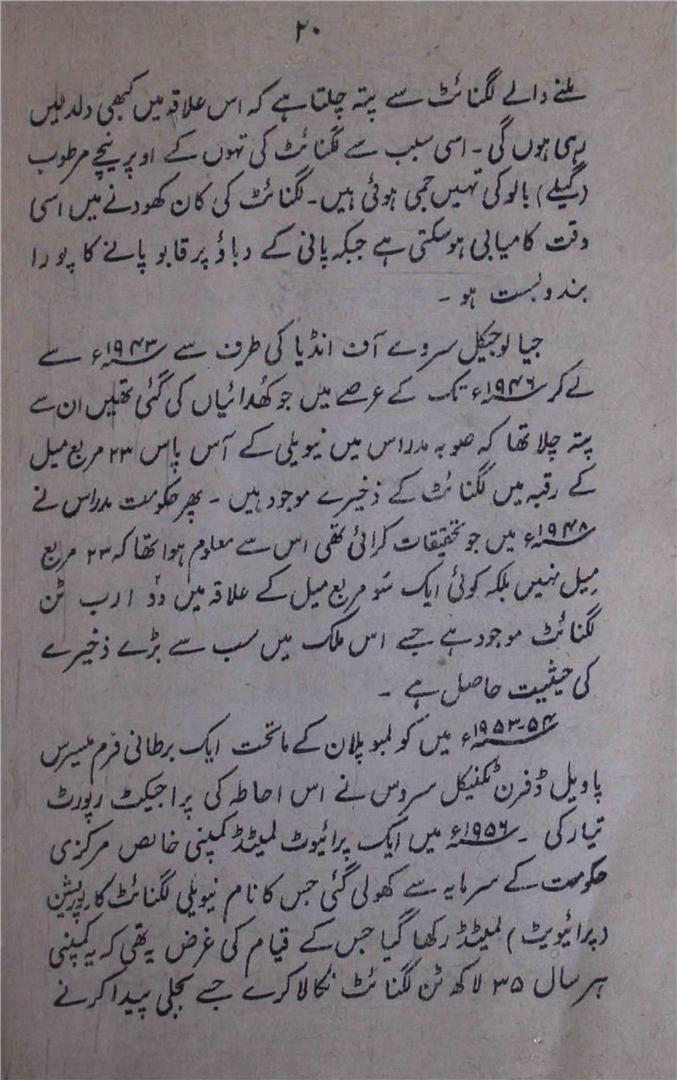 ۲۰
ملنے والے لگنائٹ سے پتہ چلتا ہے کہ اس علاقہ میں کبھی دلدلیں
رہی ہوں گی ۔ اسی سبب سے لگنائٹ کی تہوں کے اوپر نیچے مرطوب
(گیلے) بالو کی تہیں جمی ہوئی ہیں ۔ لگنائٹ کی کان کھودنے میں اسی
وقت کامیابی ہوسکتی ہے جبکہ پانی کے دباؤ پر قابو پانے کا پورا
بندوبست ہو ۔
جیالوجیکل سروے آف انڈیا کی طرف سے ۱۹۴۳ء سے
لے کر ۱۹۴۶ء تک کے عرصے میں جو کھُدائیاں کی گئی تھیں ان سے
پتہ چلا تھا کہ صوبہ مدراس میں نیویلی کے آس پاس ۲۳ مربع میل
کے رقبہ میں لگنائٹ کے ذخیرے موجود ہیں ۔ پھر حکومت مدراس نے
۱۹۴۸ء میں جو تحقیقات کرائی تھی اس سے معلوم ہوا تھا کہ ۲۳ مربع
میل نہیں بلکہ کوئی ایک سَو مربع میل کے علاقہ میں دوٗ ارب ٹن
لگنائٹ موجود ہے جسے اس ملک میں سب سے بڑے ذخیرے
کی حیثیت حاصل ہے ۔
۱۹۵۳-۵۴ء میں کولمبو پلان کے ماتحت ایک برطانی فرم میسرس
پاویل ڈفرن ٹکنیکل سروس نے اس احاطہ کی پراجیکٹ رپورٹ
تیار کی ۔ ۱۹۵۶ء میں ایک پرائیوٹ لمیٹڈ کمپنی خالص مرکزی
حکومت کے سرمایہ سے کھولی گئی جس کا نام نیویلی لگنائٹ کارپوریشن
(پرائیویٹ) لمیٹڈ رکھا گیا جس کے قیام کی غرض یہ تھی کہ یہ کمپنی
ہر سال ۳۵ لاکھ ٹن لگنائٹ نکالا کرے جسے بجلی پیدا کرنے